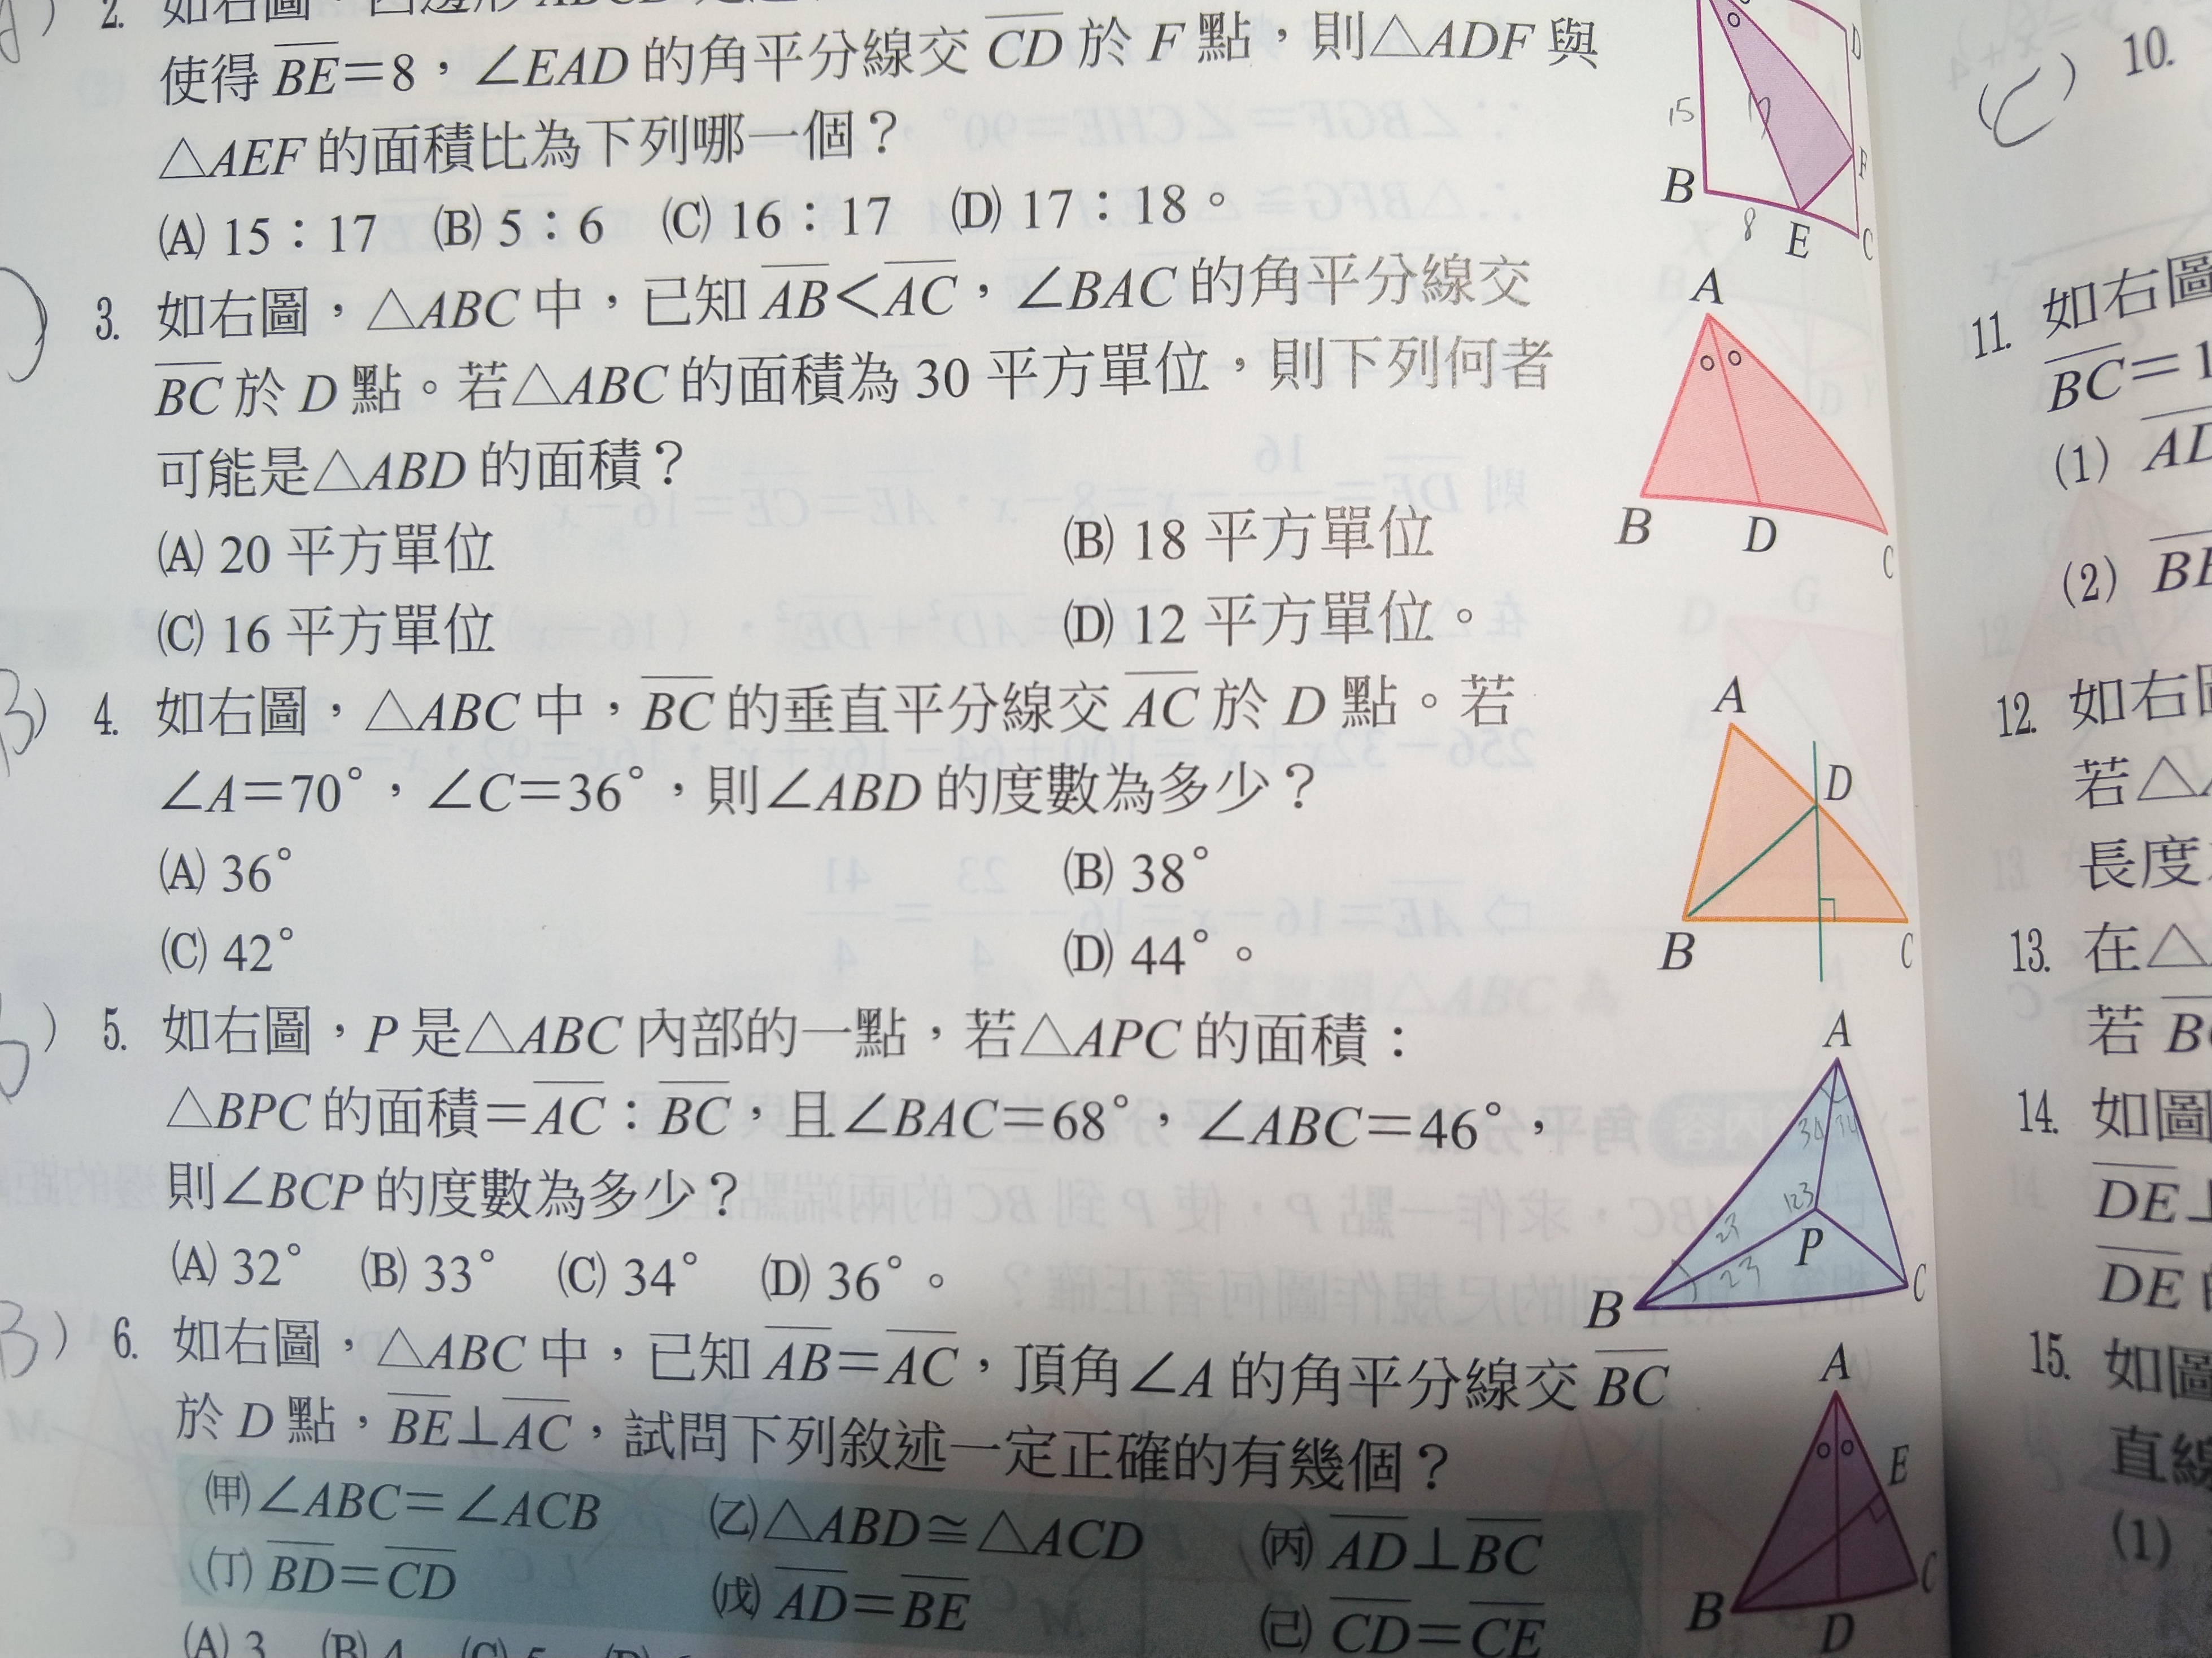 2. 如右圖,四邊形ABCD
使得BE=8,∠EAD的角平分線交CD於F點,則△ADF與
△AEF的面積比為下列哪一個?
(A) 15:17 (B) 5:6 (C) 16:17 (D) 17:18。
D
15
17
F
B
8
E
C
3. 如右圖,△ABC中,已知AB<AC,∠BAC的角平分線交
BC於D點。若△ABC的面積為30平方單位,則下列何者
可能是△ABD的面積?
(A) 20平方單位 (B) 18平方單位
(C) 16平方單位 (D) 12平方單位。
A
B D C
B) 4. 如右圖,△ABC中,BC的垂直平分線交AC於D點。若
∠A=70°,∠C=36°,則∠ABD的度數為多少?
(A) 36° (B) 38°
(C) 42° (D) 44°。
A
D
B C
) 5. 如右圖,P是△ABC內部的一點,若△APC的面積:
△BPC的面積=AC:BC,且∠BAC=68°,∠ABC=46°,
則∠BCP的度數為多少?
(A) 32° (B) 33° (C) 34° (D) 36°。
A
34 34
123
23
P
23
B C
B) 6. 如右圖,△ABC中,已知AB=AC,頂角∠A的角平分線交BC
於D點,BE⊥AC,試問下列敘述一定正確的有幾個?
(甲)∠ABC=∠ACB (乙)△ABD≅△ACD (丙)AD⊥BC
(丁)BD=CD (戊)AD=BE (己)CD=CE
(A) 3 (B) 4 (C) 5 (D) 6
A
E
B D C
(C) 10.
11. 如右圖
BC=1
(1) AD
(2) BE
12. 如右圖
若△
長度
13. 在△
若B
14. 如圖
DE⊥
DE的
15. 如圖
直線
(1)